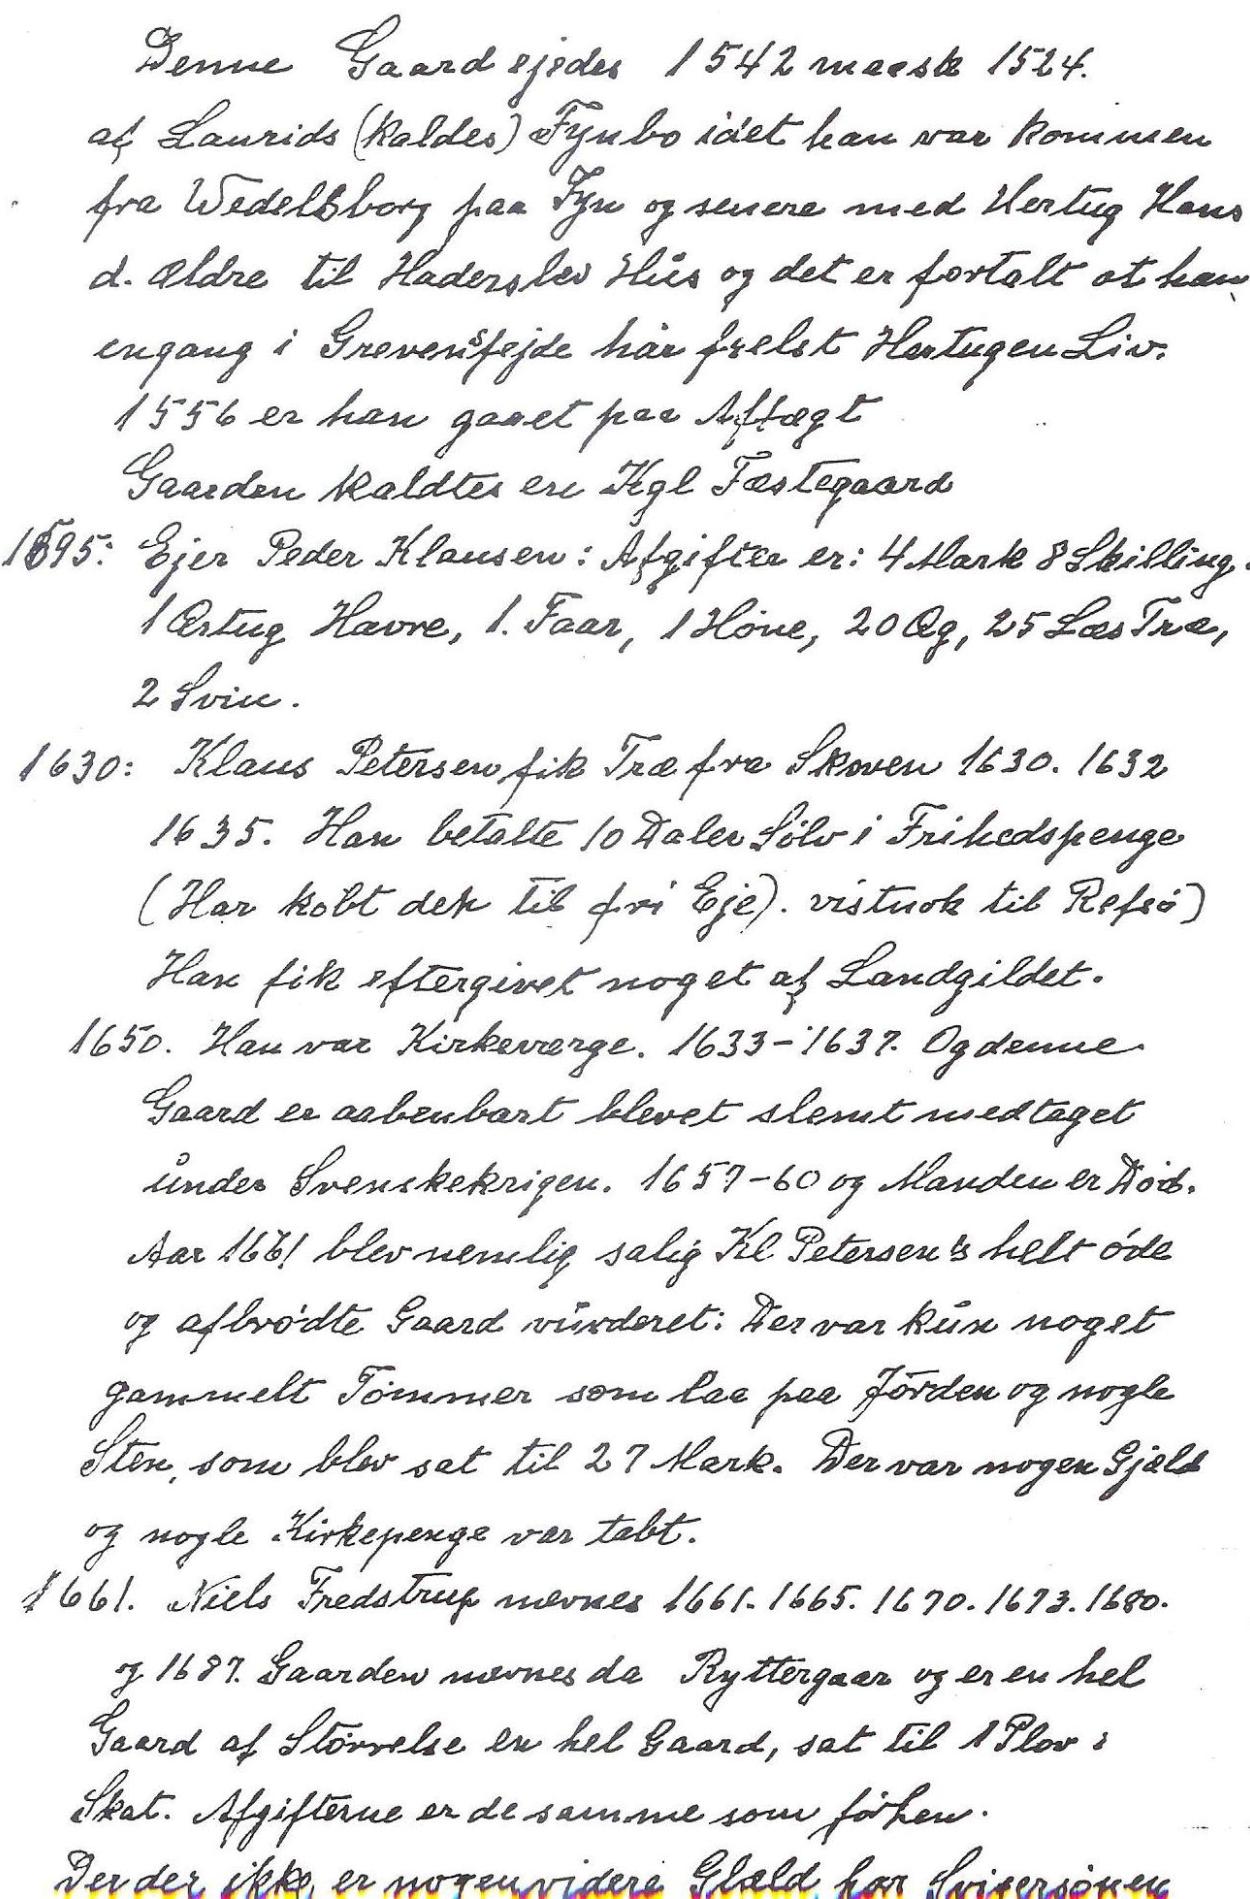 Denne Gaard ejedes 1542 maaske 1524.
af Laurids (kaldes) Fynbo idet han var kommen
fra Wedelsborg paa Fyn og senere med Hertug Hans
d. Ældre til Haderslev Hus og det er fortalt at han
engang i Grevensfejde har frelst Hertugen Liv.
1556 er han gaaet paa Aftægt
Gaarden kaldtes en Kgl Fæstegaard
1595: Ejer Peder Klausen: Afgifter er: 4 Mark 8 Skilling.
1 Ørtug Havre, 1. Faar, 1 Høne, 20 Æg, 25 Læs Træ,
2 Svin.
1630: Klaus Petersen fik Træ fra Skoven 1630. 1632
1635. Han betalte 10 Daler Sölv i Frihedspenge
(Har köbt den til fri Eje). vistnok til Refsö)
Han fik eftergivet noget af Landgildet.
1650. Han var Kirkeværge. 1633-1637. Og denne
Gaard er aabenbart blevet slemt medtaget
under Svenskekrigen. 1657-60 og Manden er Död.
Aar 1661 blev nemlig salig Kl Petersen's helt öde
og afbrödte Gaard vurderet: Der var kun noget
gammelt Tömmer som laa paa Jörden og nogle
Sten, som blev sat til 27 Mark. Der var nogen Gjæld
og nogle Kirkepenge var tabt.
1661. Niels Fredstrup nævnes 1661. 1665. 1670. 1673. 1680.
og 1687. Gaarden nævnes da Ryttergaar og er en hel
Gaard af Störrelse en hel Gaard, sat til 1 Plov i
Skat. Afgifterne er de samme som förhen.
Der der ikke er nogen videre Glæld har Svigersönen